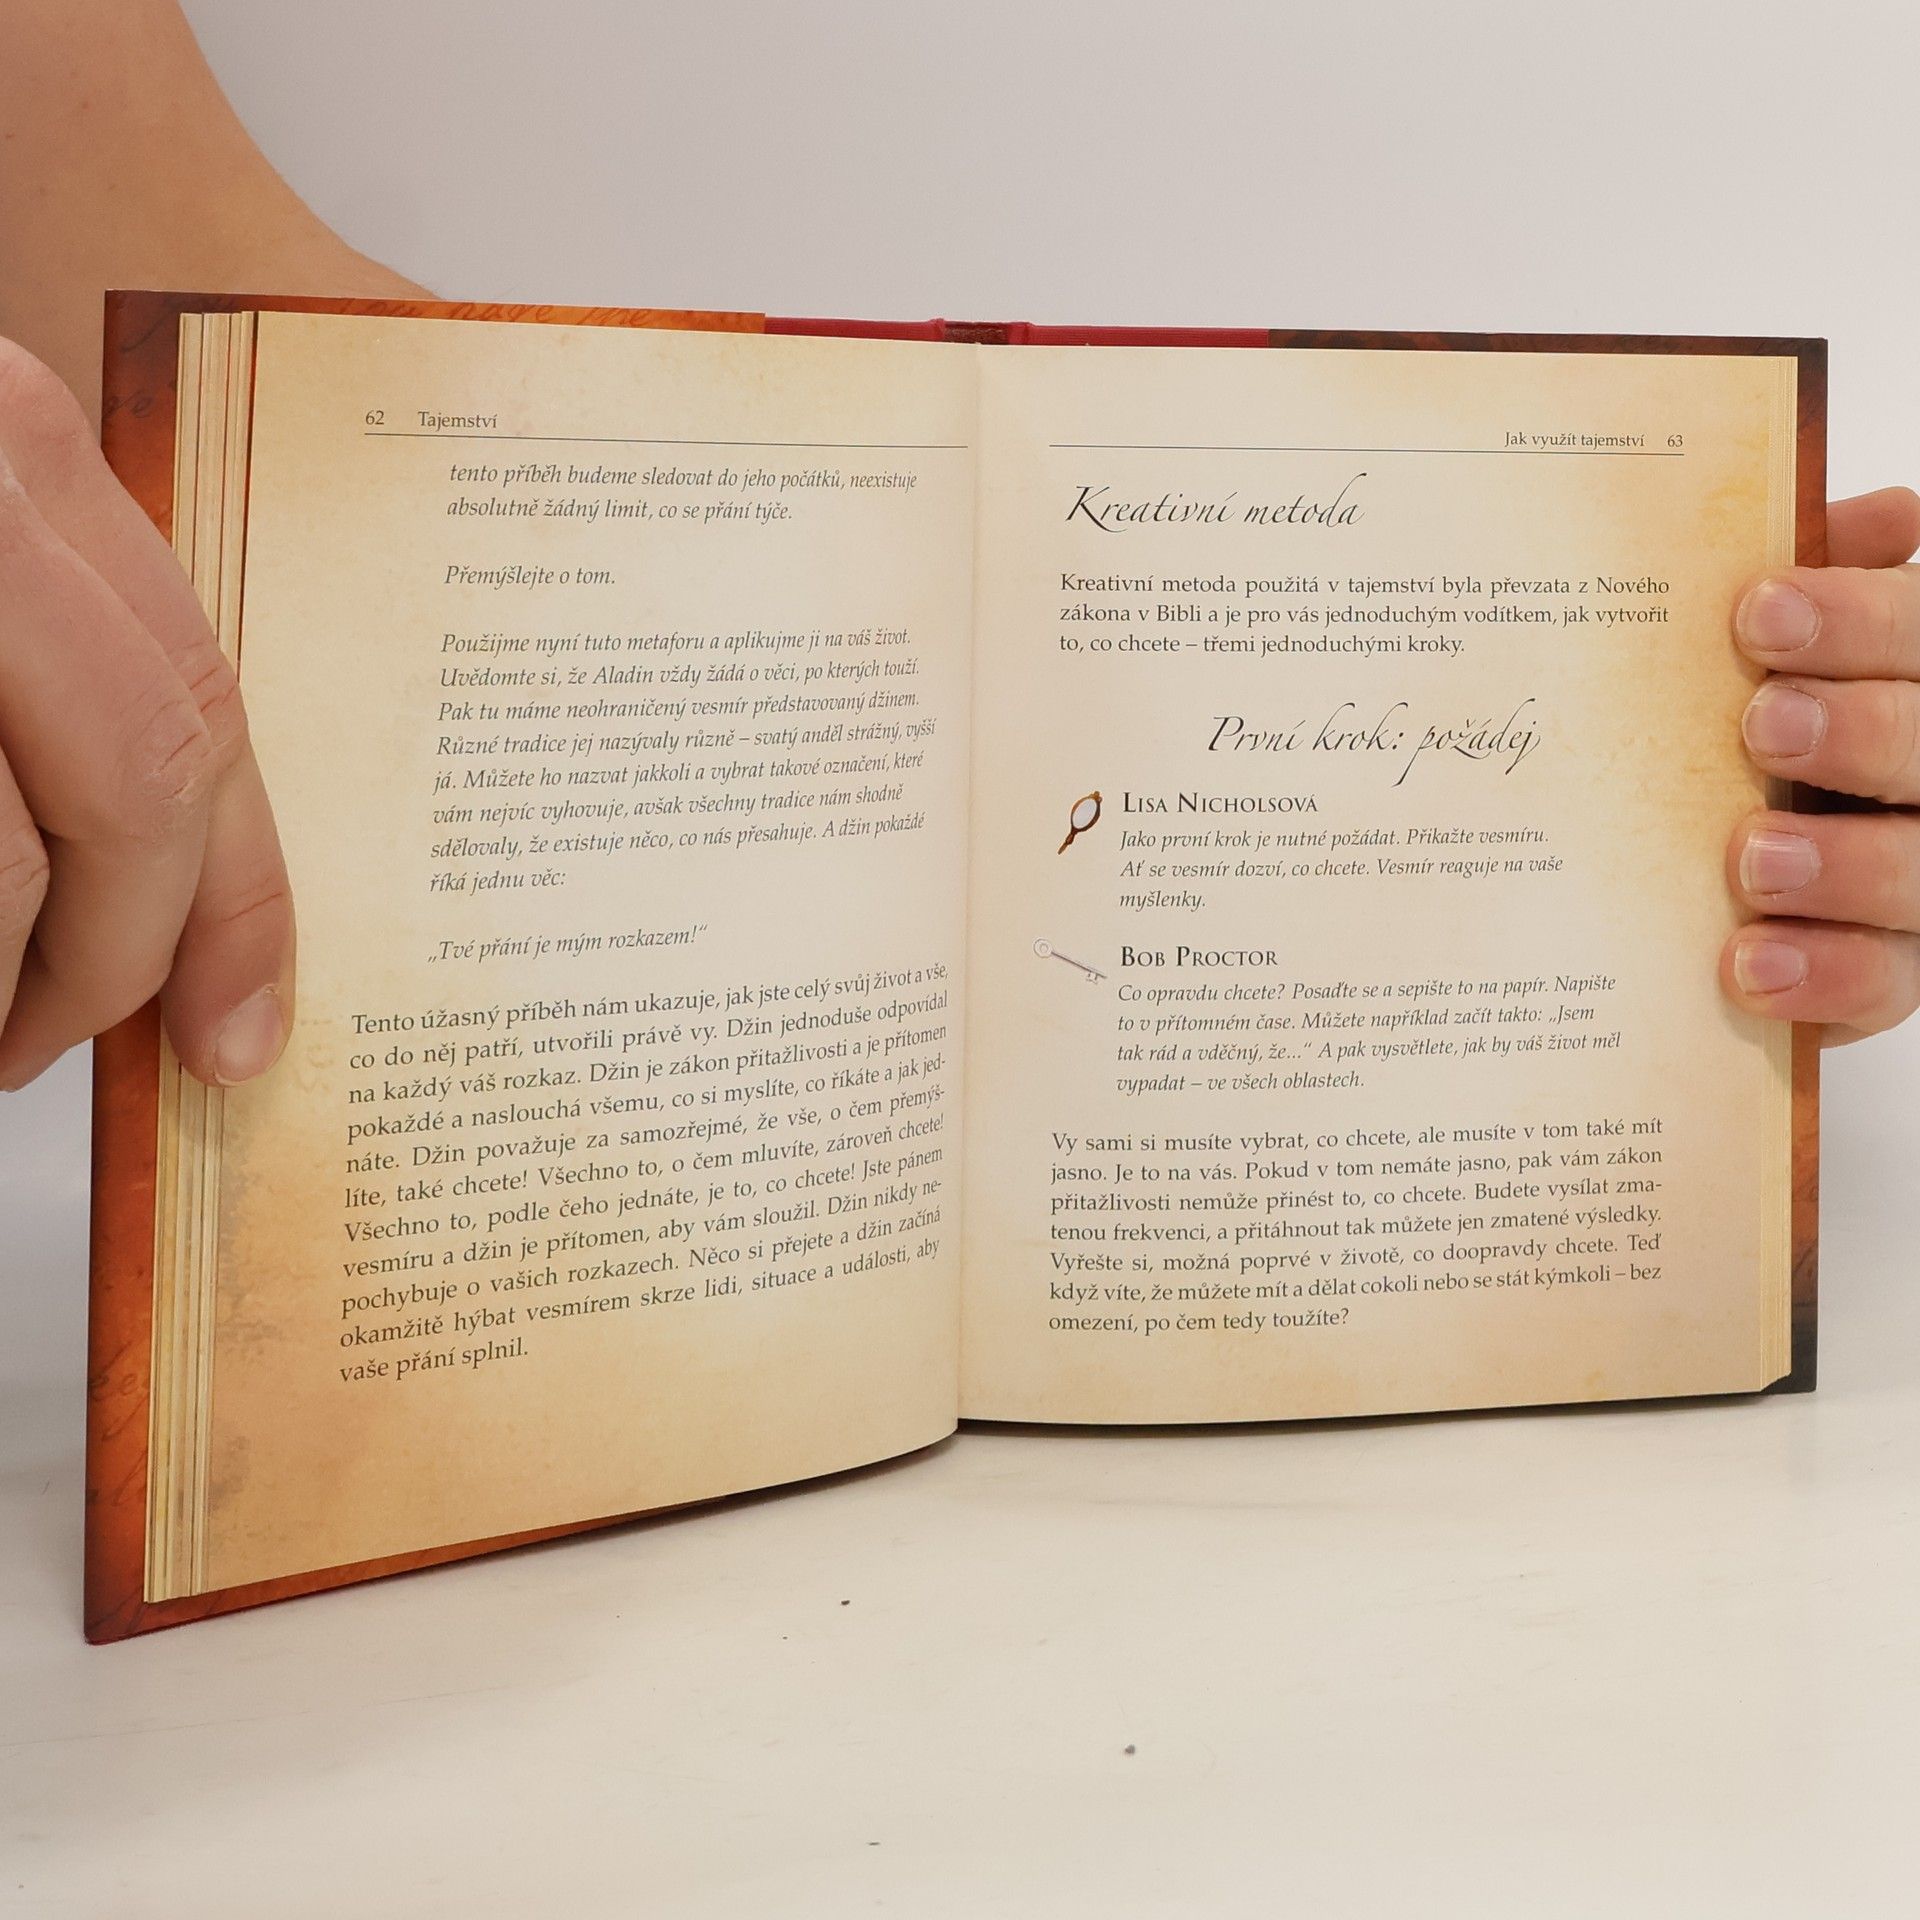 you have the
62 Tajemství
tento příběh budeme sledovat do jeho počátků, neexistuje
absolutně žádný limit, co se přání týče.
Přemýšlejte o tom.
Použijme nyní tuto metaforu a aplikujme ji na váš život.
Uvědomte si, že Aladin vždy žádá o věci, po kterých touží.
Pak tu máme neohraničený vesmír představovaný džinem.
Různé tradice jej nazývaly různě – svatý anděl strážný, vyšší
já. Můžete ho nazvat jakkoli a vybrat takové označení, které
vám nejvíc vyhovuje, avšak všechny tradice nám shodně
sdělovaly, že existuje něco, co nás přesahuje. A džin pokaždé
říká jednu věc:
„Tvé přání je mým rozkazem!“
Tento úžasný příběh nám ukazuje, jak jste celý svůj život a vše,
co do něj patří, utvořili právě vy. Džin jednoduše odpovídal
na každý váš rozkaz. Džin je zákon přitažlivosti a je přítomen
pokaždé a naslouchá všemu, co si myslíte, co říkáte a jak jed-
náte. Džin považuje za samozřejmé, že vše, o čem přemýš-
líte, také chcete! Všechno to, o čem mluvíte, zároveň chcete!
Všechno to, podle čeho jednáte, je to, co chcete! Jste pánem
vesmíru a džin je přítomen, aby vám sloužil. Džin nikdy ne-
pochybuje o vašich rozkazech. Něco si přejete a džin začíná
okamžitě hýbat vesmírem skrze lidi, situace a události, aby
vaše přání splnil.
Jak využít tajemství 63
Kreativní metoda
Kreativní metoda použitá v tajemství byla převzata z Nového
zákona v Bibli a je pro vás jednoduchým vodítkem, jak vytvořit
to, co chcete – třemi jednoduchými kroky.
První krok: požádej
LISA NICHOLSOVÁ
Jako první krok je nutné požádat. Přikažte vesmíru.
Ať se vesmír dozví, co chcete. Vesmír reaguje na vaše
myšlenky.
BOB PROCTOR
Co opravdu chcete? Posaďte se a sepište to na papír. Napište
to v přítomném čase. Můžete například začít takto: „Jsem
tak rád a vděčný, že...“ A pak vysvětlete, jak by váš život měl
vypadat – ve všech oblastech.
Vy sami si musíte vybrat, co chcete, ale musíte v tom také mít
jasno. Je to na vás. Pokud v tom nemáte jasno, pak vám zákon
přitažlivosti nemůže přinést to, co chcete. Budete vysílat zma-
tenou frekvenci, a přitáhnout tak můžete jen zmatené výsledky.
Vyřešte si, možná poprvé v životě, co doopravdy chcete. Teď
když víte, že můžete mít a dělat cokoli nebo se stát kýmkoli – bez
omezení, po čem tedy toužíte?